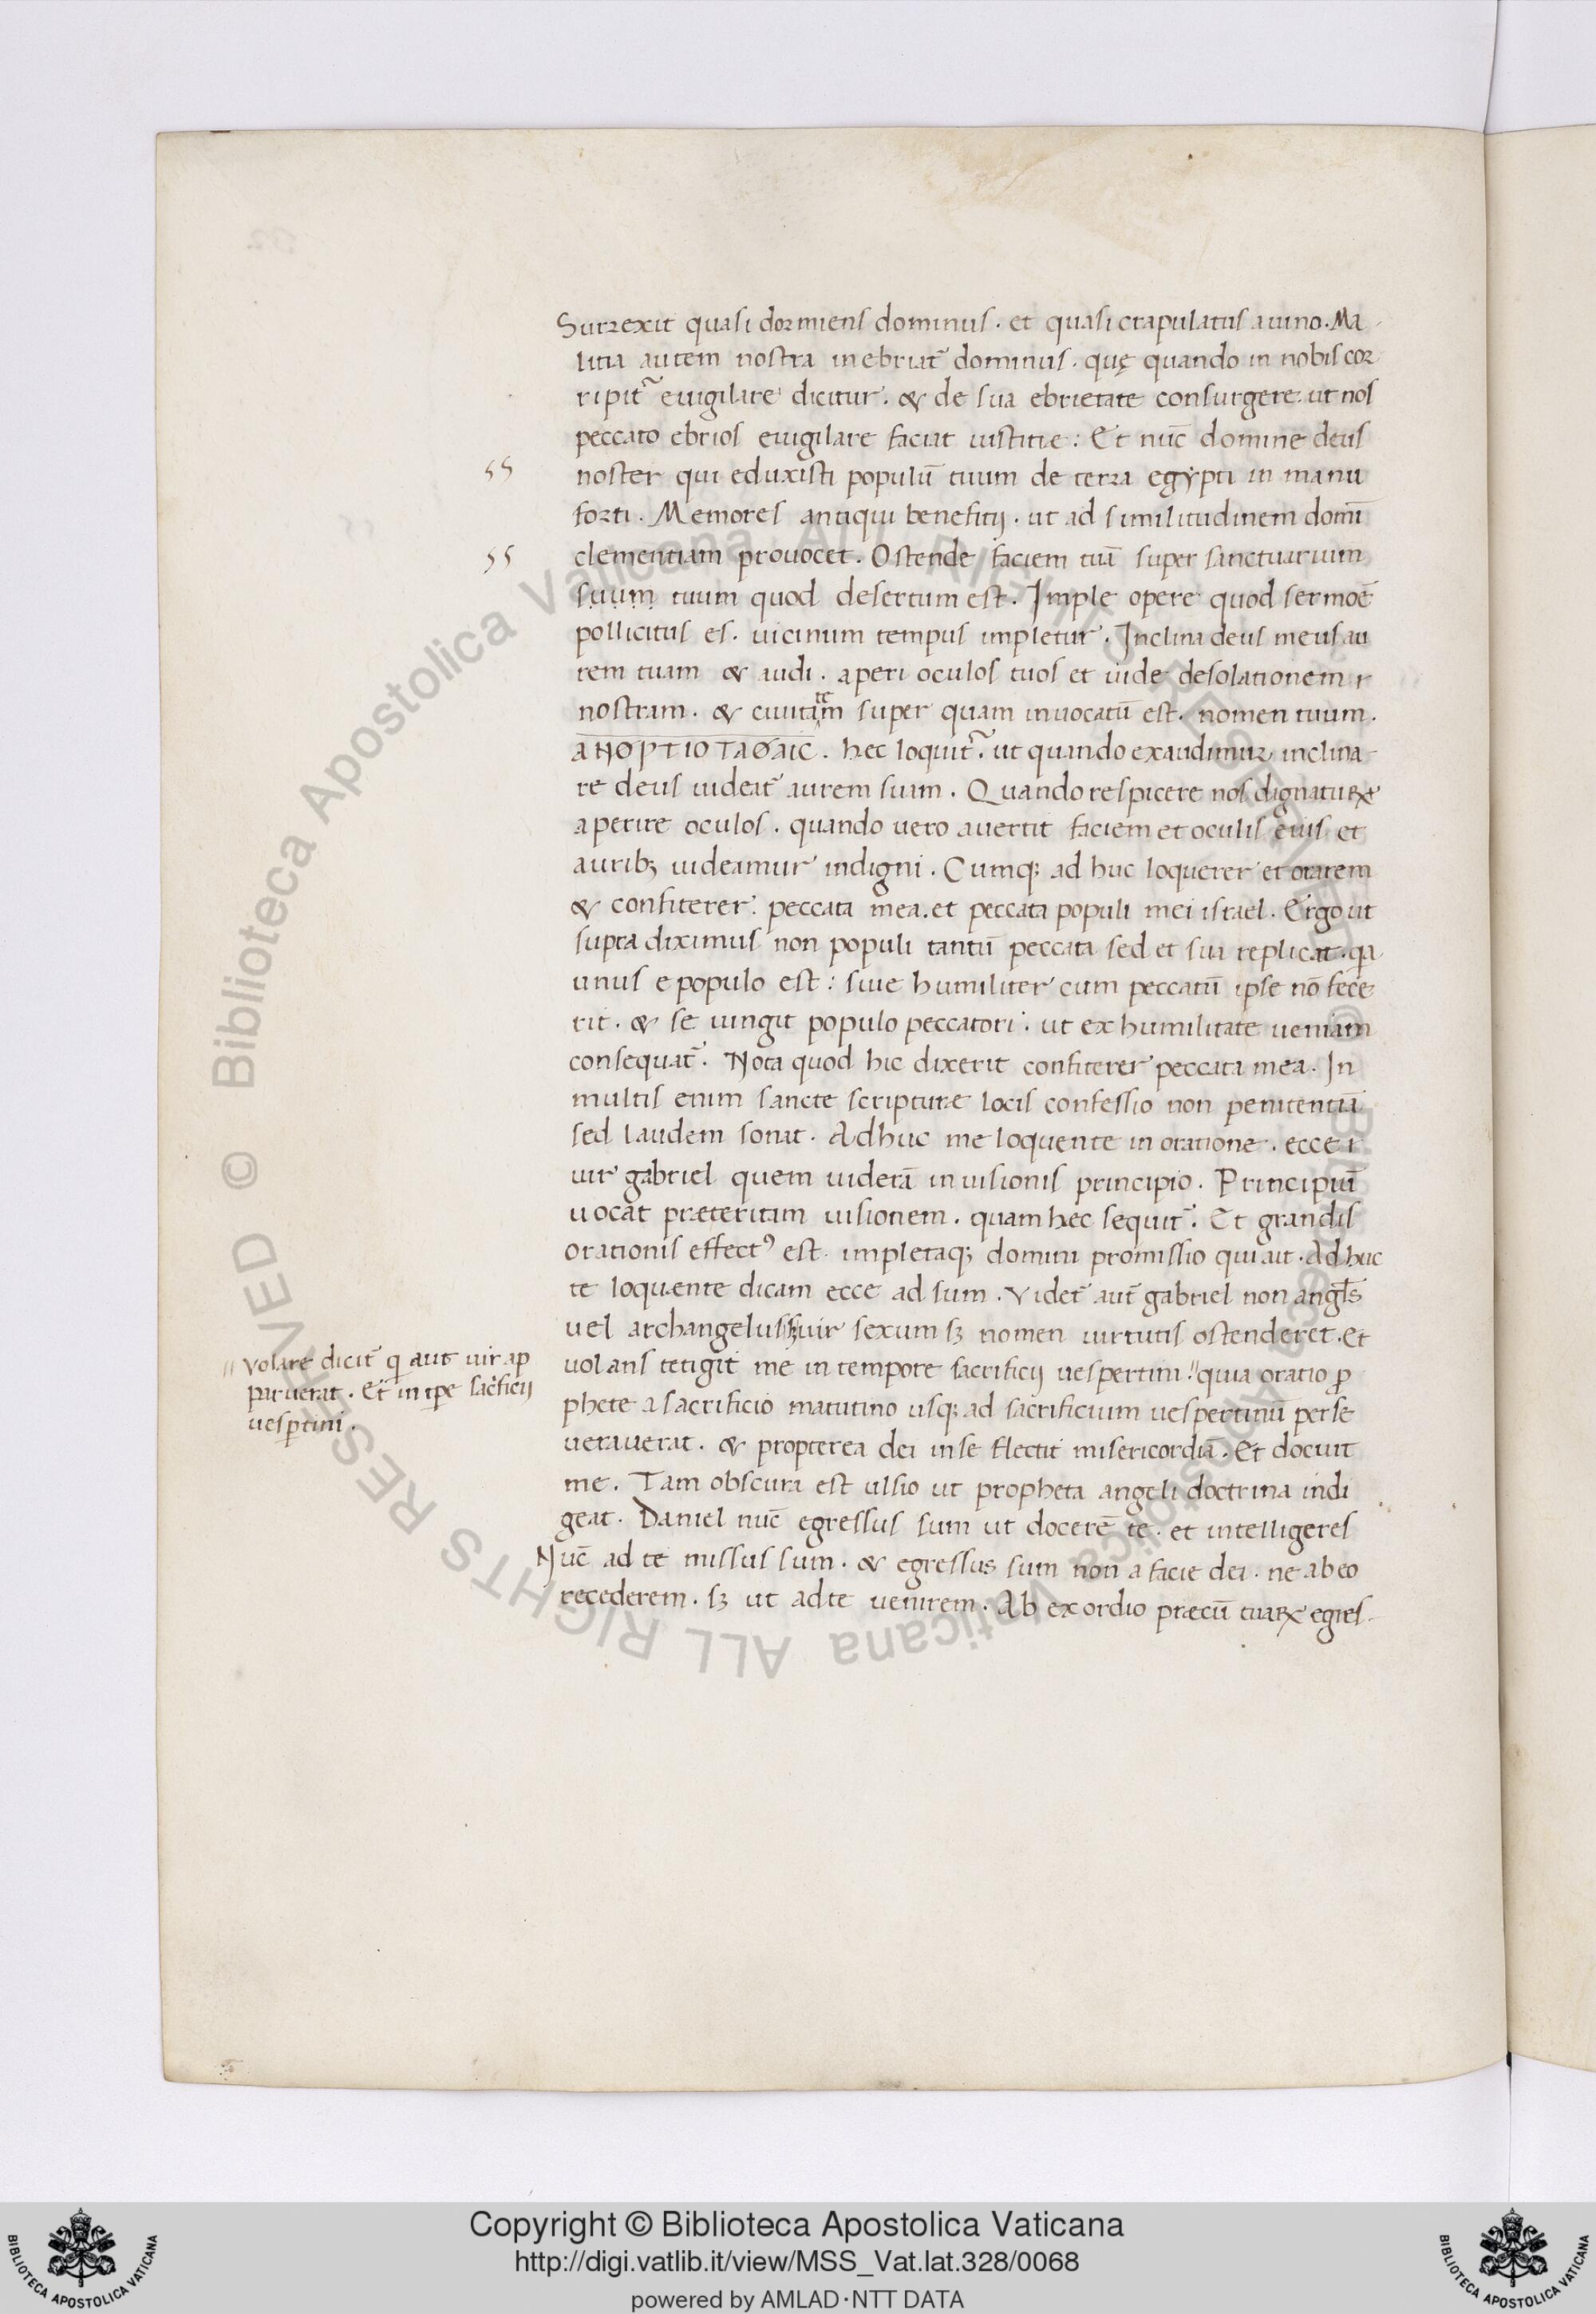 Surrexit quasi dormiens dominus. et quasi crapulatus a uino. Ma
litia autem nostra inebriat̃ dominus. quę quando in nobis cor
ripit̃ euigilare dicitur. & de sua ebrietate consurgere: ut nos
peccato ebrios euigilare faciat iustitie: Et nūc domine deus
noster qui eduxisti populū tuum de terra egypti in manu
forti. Memores antiqui benefitij. ut ad similitudinem domī
clementiam prouocet. Ostende faciem tuā super sanctuarium
suum tuum quod desertum est. Imple opere quod sermoē
pollicitus es. uicinum tempus impletur. Inclina deus meus au
rem tuam & audi. aperi oculos tuos et uide desolationem
nostram. & ciuitatēm super quam inuocatū est. nomen tuum.
hec loquit̃. ut quando exaudimur inclina
re deus uideat̃ aurem suam. Quando respicere nos dignatur et
aperire oculos. quando uero auertit faciem et oculis eius et
auribꝫ uideamur indigni. Cumqꝫ ad huc loquerer et orarem
& confiterer: peccata mea. et peccata populi mei israel. Ergo ut
supra diximus non populi tantū peccata sed et sua replicat. qa
unus e populo est: siue humiliter cum peccatū ipse nō fece
rit. & se iungit populo peccatori: ut ex humilitate ueniam
consequat̃. Nota quod hic dixerit confiterer peccata mea. In
multis enim sancte scripturæ locis confessio non penitentiā
sed laudem sonat. Adhuc me loquente in oratione. ecce
uir gabriel quem uiderā in uisionis principio. Principiū
uocat præteritam uisionem. quam hec sequit̃. Et grandis
orationis effectꝰ est. impletaqꝫ domini promissio qui ait. Ad huc
te loquente dicam ecce ad sum. Videt̃ aut̃ gabriel non angls
uel archangelus sꝫ uir sexum sꝫ nomen uirtutis ostenderet. Et
uolans tetigit me in tempore sacrificij uespertini. "quia oratio ꝓ
phete a sacrificio matutino usqꝫ ad sacrificium uespertinū perse
uerauerat. & propterea dei in se flectit misericordiā. Et docuit
me. Tam obscura est uisio ut propheta angeli doctrina indi
geat. Daniel nūc egressus sum ut docerē te. et intelligeres
Nūc ad te missus sum. & egressus sum non a facie dei. ne ab eo
recederem. sꝫ ut ad te uenirem. Ab exordio præcū tuaꝝ egres
"volare dicit̃ q aut uir ap
paruerat. Et in tpe sacficij
uesptini.
Copyright © Biblioteca Apostolica Vaticana
http://digi.vatlib.it/view/MSS_Vat.lat.328/0068
powered by AMLAD·NTT DATA
BIBLIOTECA APOSTOLICA VATICANA
BIBLIOTECA APOSTOLICA VATICANA
© Biblioteca Apostolica Vaticana ALL RIGHTS RESERVED
© Biblioteca Apostolica Vaticana ALL RIGHTS RESERVED